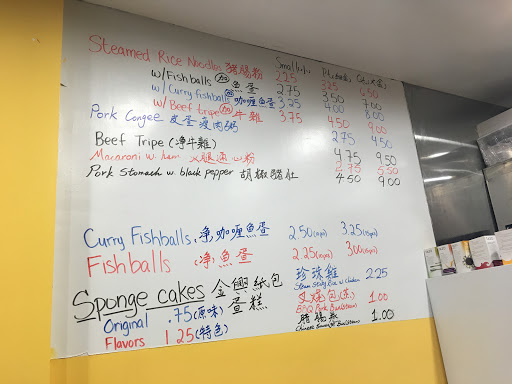 Steamed Rice Noodles 豬腸粉 2.25 3.25 6.50
w/Fishballs 加魚蛋 2.75 3.50 7.00
w/ Curry fishballs 加咖喱魚蛋 3.25 4.00 8.00
w/ Beef tripe 加牛雜 3.75 4.50 9.00
Pork Congee 皮蛋瘦肉粥 2.75 4.50
Beef Tripe (淨牛雜) 4.75 9.50
Macaroni w. ham 火腿通心粉 2.75 5.50
Pork Stomach w. black pepper 胡椒豬肚 4.50 9.00
Curry Fishballs 淨咖喱魚蛋 2.50 3.25
Fishballs (淨)魚蛋 2.25 3.00
Sponge cakes 金興紙包蛋糕
Original .75 (原味)
Flavors 1.25 (特色)
珍珠雞 2.25
叉燒包 1.00
BBQ Pork Bun
1.00